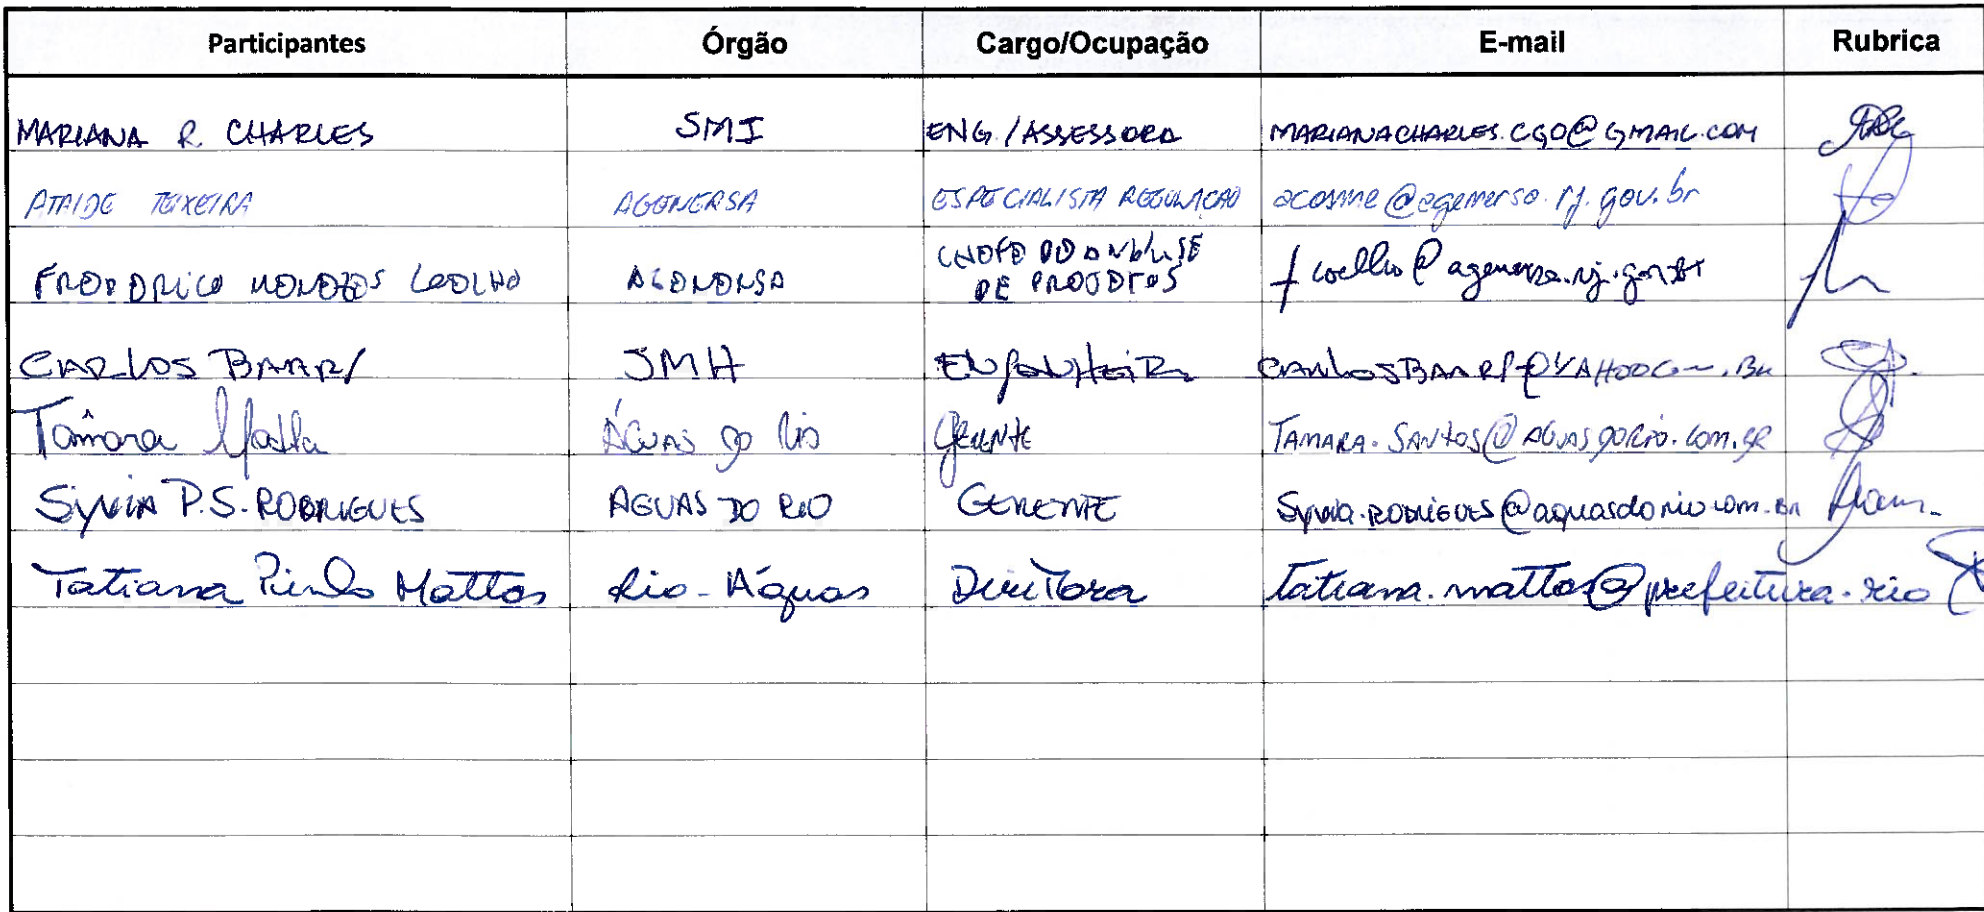 Participantes Órgão Cargo/Ocupação E-mail Rubrica
MARIANA R. CHARLES SMI ENG./ASSESSORA MARIANACHARLES.CGO@GMAIL.COM
ATAIDE TEIXEIRA AGENERSA ESPECIALISTA REGULAÇÃO acosme@agenersa.rj.gov.br
FREDERICO MENEZES COELHO AGENERSA CHEFE DE ANÁLISE DE PROJETOS fcoelho@agenersa.rj.gov.br
CARLOS SMH
Tâmara ÁGUAS DO RIO Gerente TAMARA.SANTOS@AGUASDORIO.COM.BR
SYLVIA P.S. RODRIGUES AGUAS DO RIO GERENTE Sylvia.RODRIGUES@aguasdorio.com.BR
Tatiana Mattos Rio-Águas Diretora tatiana.mattos@prefeitura.rio